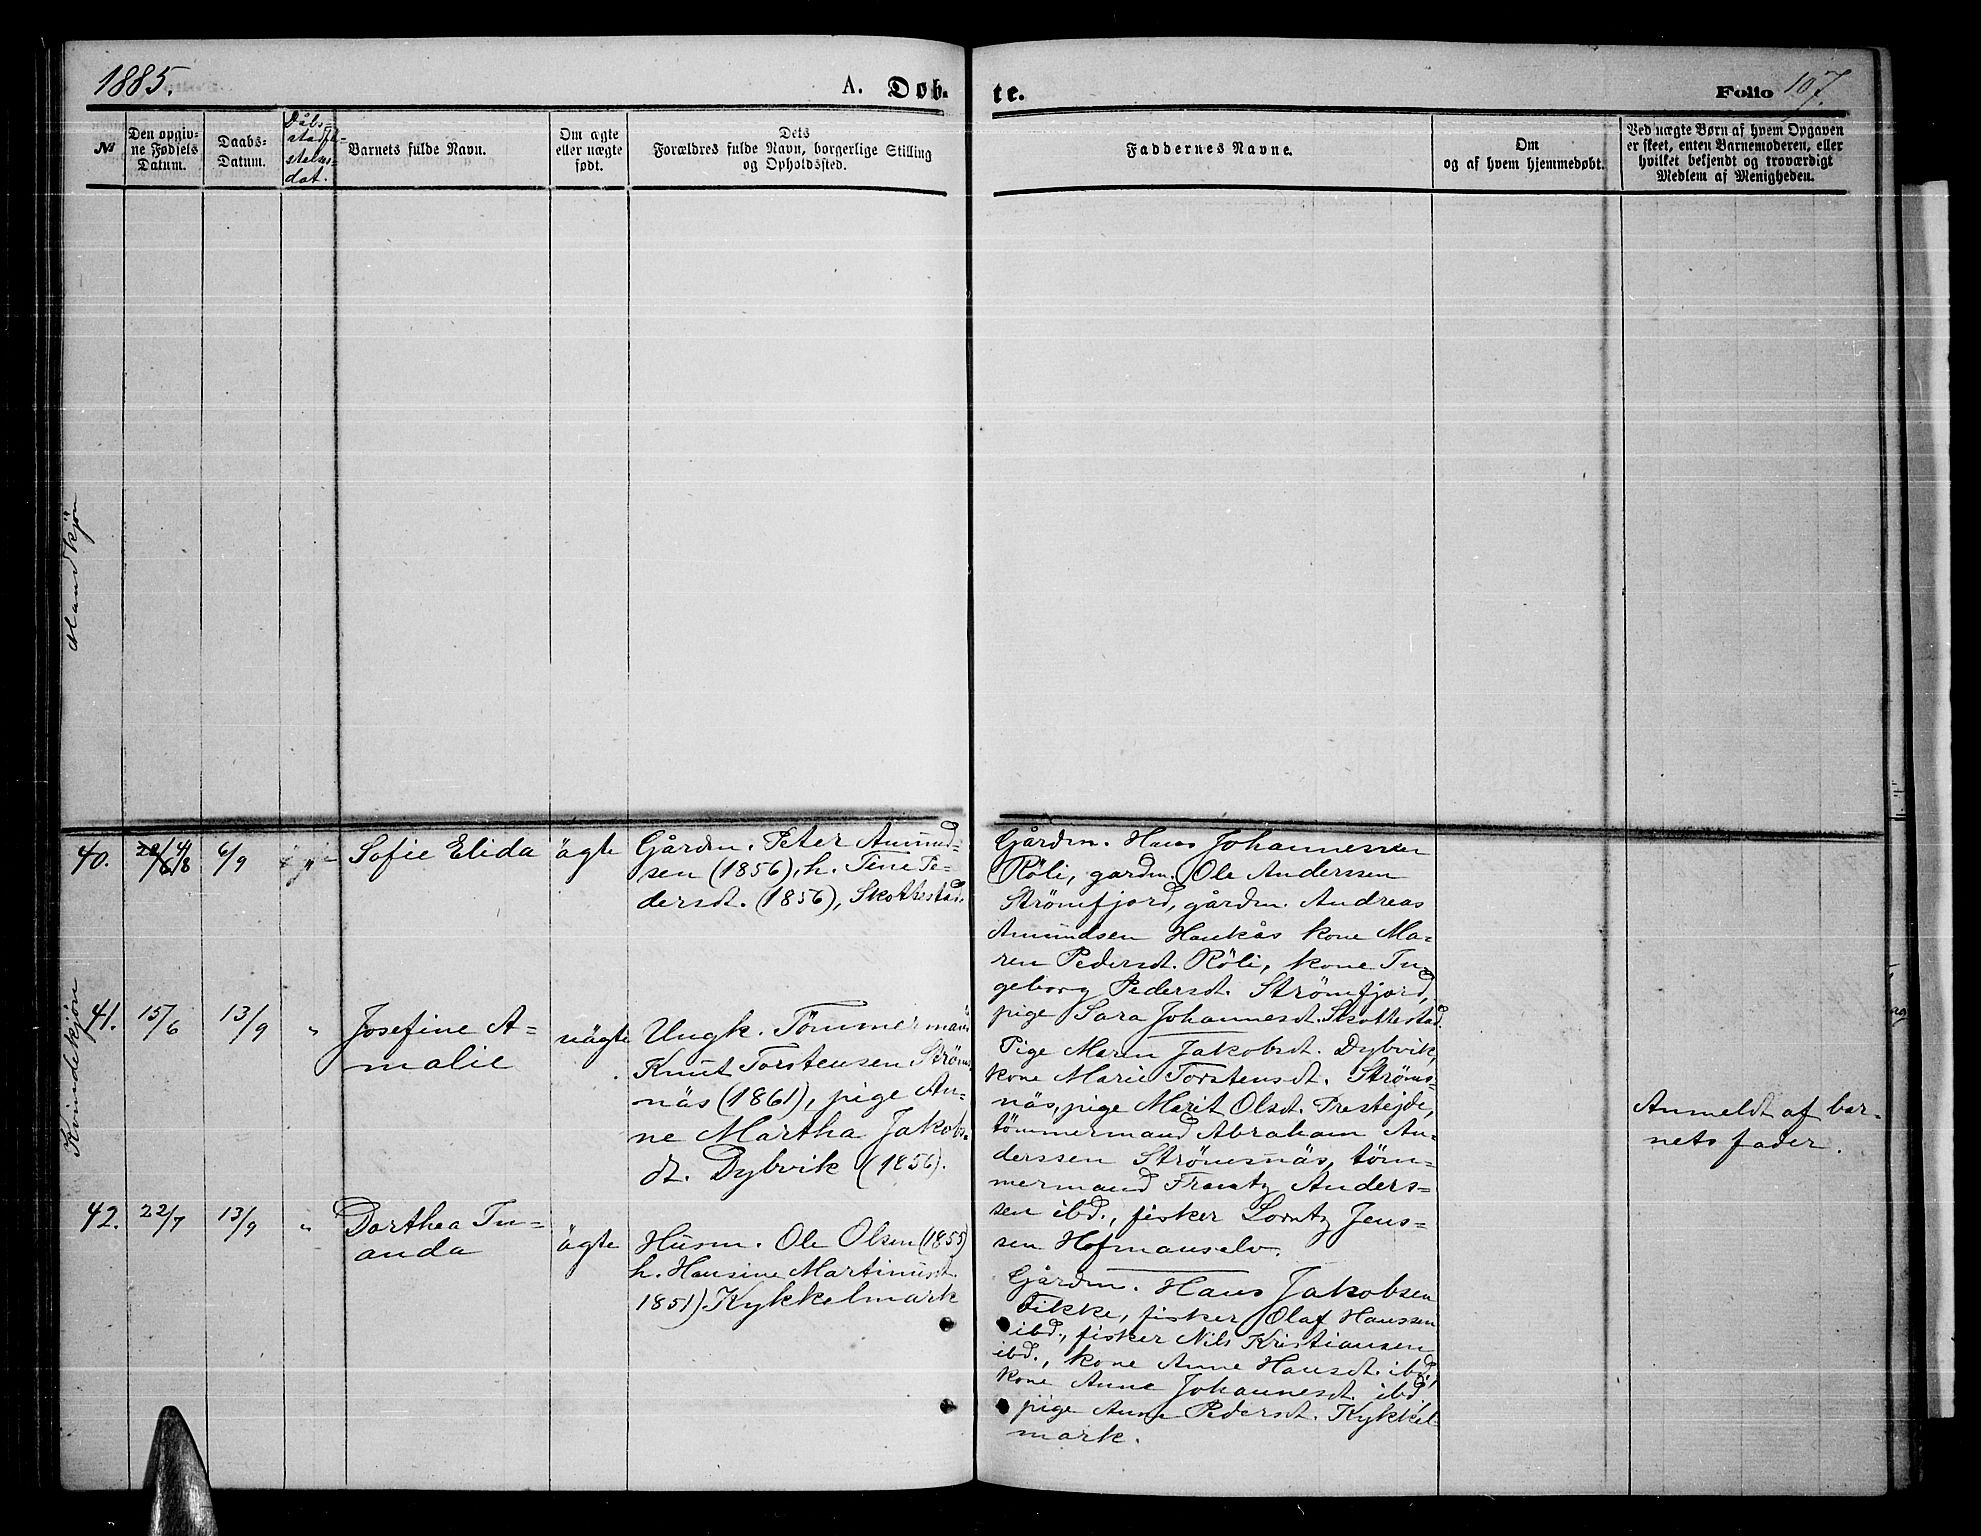 1885.
A. Døb-
te.
Folio 107.
№
Den opgiv-
ne Fødsels
Datum.
Daabs-
Datum.
Dåbs-
stadfæ-
stelses-
dat.
Barnets fulde Navn.
Om ægte
eller uægte
født.
Dets
Forældres fulde Navn, borgerlige Stilling
og Opholdssted.
Faddernes Navne.
Om
og af hvem hjemmedøbt.
Ved uægte Børn af hvem Opgaven
er skeet, enten Barnemoderen, eller
hvilket bekjendt og troværdigt
Medlem af Menigheden.
Mandkjön
Kvindekjön
40.
4/8
6/9
Sofie Elida
ägte
Gårdm. Peter Amund-
sen (1856), h. Tine Pe-
dersdt. (1856), Skottestad.
Gårdm. Hans Johannessen
Röli, gardm. Ole Anderssen
Strömfjord, gårdm. Andreas
Amundsen Haukås kone Ma-
ren Pedersdt. Röli, kone In-
geborg Pedersdt. Strömfjord,
pige Sara Johannesdt. Skottestad.
41.
15/6
13/9
"
Josefine A-
malie
uägte
Ungk. Tömmermand
Knut Torstensen Ströms-
näs (1861), pige An-
ne Martha Jakobs-
dt. Dybvik (1856).
Pige Maren Jakobsdt. Dybvik,
kone Marie Torstensdt. Ströms-
näs, pige Marit Olsdt. Prestejde,
tömmermand Abraham An-
derssen Strömsnäs, töm-
mermand Frantz Anders-
sen ibd., fisker Lorntz Jens-
sen Hofmanselv.
Anmeldt af bar-
nets fader.
42.
22/7
13/9
"
Dorthea Iu-
anda
ägte
Husm. Ole Olsen (1855)
h. Hansine Martinusdt.
1851) Kykkelmark
Gårdm. Hans Jakobsen
Fikke, fisker Olaf Hanssen
ibd., fisker Nils Kristiansen
ibd., kone Anne Hansdt. ibd,
kone Anne Johannesdt. ibd
pige Anne Pedersdt. Kykkel-
mark.